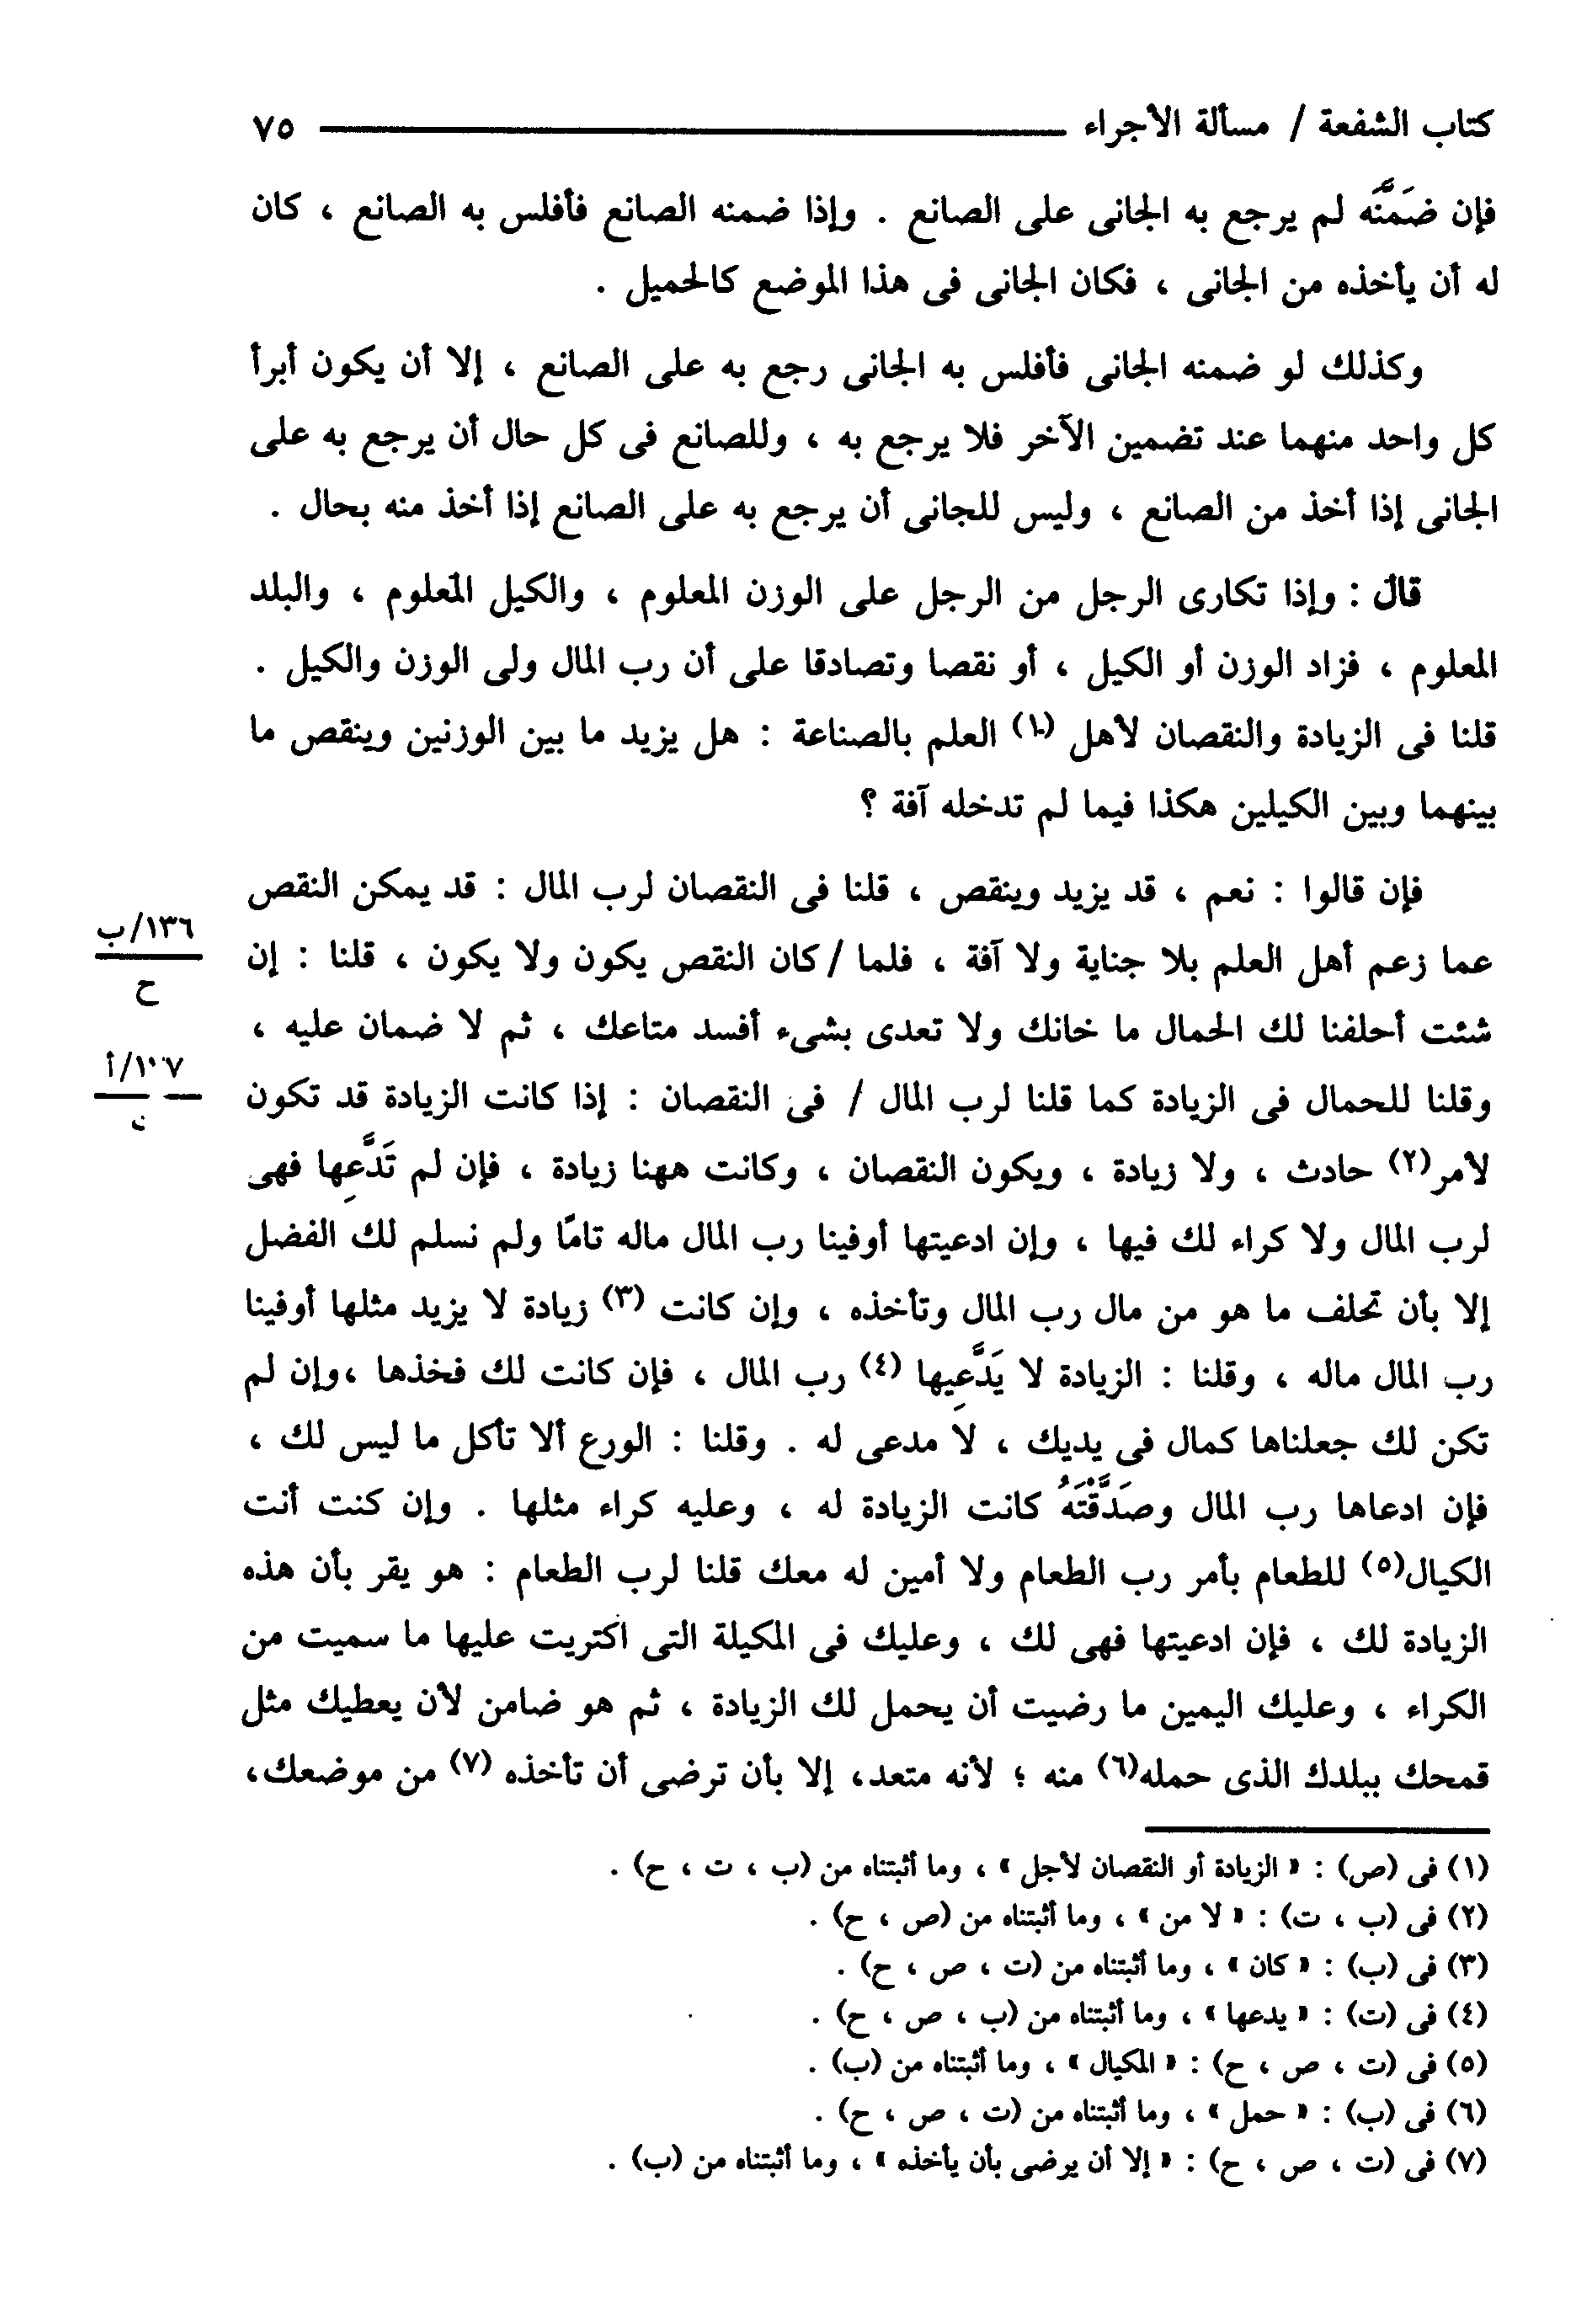 كتاب الشفعة / مسألة الأجراء ــــــــــ ٧٥
فإن ضَمَّنَه لم يرجع به الجانى على الصانع . وإذا ضمنه الصانع فأفلس به الصانع ، كان
له أن يأخذه من الجانى ، فكان الجانى فى هذا الموضع كالحميل .
وكذلك لو ضمنه الجانى فأفلس به الجانى رجع به على الصانع ، إلا أن يكون أبرأ
كل واحد منهما عند تضمين الآخر فلا يرجع به ، وللصانع فى كل حال أن يرجع به على
الجانى إذا أخذ من الصانع ، وليس للجانى أن يرجع به على الصانع إذا أخذ منه بحال .
قال : وإذا تكارى الرجل من الرجل على الوزن المعلوم ، والكيل المعلوم ، والبلد
المعلوم ، فزاد الوزن أو الكيل ، أو نقصا وتصادقا على أن رب المال ولى الوزن والكيل .
قلنا فى الزيادة والنقصان لأهل (١) العلم بالصناعة : هل يزيد ما بين الوزنين وينقص ما
بينهما وبين الكيلين هكذا فيما لم تدخله آفة ؟
فإن قالوا : نعم ، قد يزيد وينقص ، قلنا فى النقصان لرب المال : قد يمكن النقص
عما زعم أهل العلم بلا جناية ولا آفة ، فلما / كان النقص يكون ولا يكون ، قلنا : إن
١٣٦/ب
ح
شئت أحلفنا لك الحمال ما خانك ولا تعدى بشىء أفسد متاعك ، ثم لا ضمان عليه ،
وقلنا للحمال فى الزيادة كما قلنا لرب المال / فى النقصان : إذا كانت الزيادة قد تكون
١٠٧/أ
لأمر(٢) حادث ، ولا زيادة ، ويكون النقصان ، وكانت ههنا زيادة ، فإن لم تَدَّعِها فهى
لرب المال ولا كراء لك فيها ، وإن ادعيتها أوفينا رب المال ماله تامًا ولم نسلم لك الفضل
إلا بأن تحلف ما هو من مال رب المال وتأخذه ، وإن كانت (٣) زيادة لا يزيد مثلها أوفينا
رب المال ماله ، وقلنا : الزيادة لا يَدَّعِيها (٤) رب المال ، فإن كانت لك فخذها ،وإن لم
تكن لك جعلناها كمال فى يديك ، لا مدعى له . وقلنا : الورع ألا تأكل ما ليس لك ،
فإن ادعاها رب المال وصَدَّقْتَهُ كانت الزيادة له ، وعليه كراء مثلها . وإن كنت أنت
الكيال(٥) للطعام بأمر رب الطعام ولا أمين له معك قلنا لرب الطعام : هو يقر بأن هذه
الزيادة لك ، فإن ادعيتها فهى لك ، وعليك فى المكيلة التى اكتريت عليها ما سميت من
الكراء ، وعليك اليمين ما رضيت أن يحمل لك الزيادة ، ثم هو ضامن لأن يعطيك مثل
قمحك ببلدك الذى حمله(٦) منه ؛ لأنه متعد، إلا بأن ترضى أن تأخذه (٧) من موضعك،
(١) فى (ص) : « الزيادة أو النقصان لأجل » ، وما أثبتناه من (ب ، ت ، ح) .
(٢) فى (ب ، ت) : « لا من » ، وما أثبتناه من (ص ، ح) .
(٣) فى (ب) : « كان » ، وما أثبتناه من (ت ، ص ، ح) .
(٤) فى (ت) : « يدعها » ، وما أثبتناه من (ب ، ص ، ح) .
(٥) فى (ت ، ص ، ح) : « المكيال » ، وما أثبتناه من (ب) .
(٦) فى (ب) : « حمل » ، وما أثبتناه من (ت ، ص ، ح) .
(٧) فى (ت ، ص ، ح) : « إلا أن يرضى بأن يأخذه » ، وما أثبتناه من (ب) .